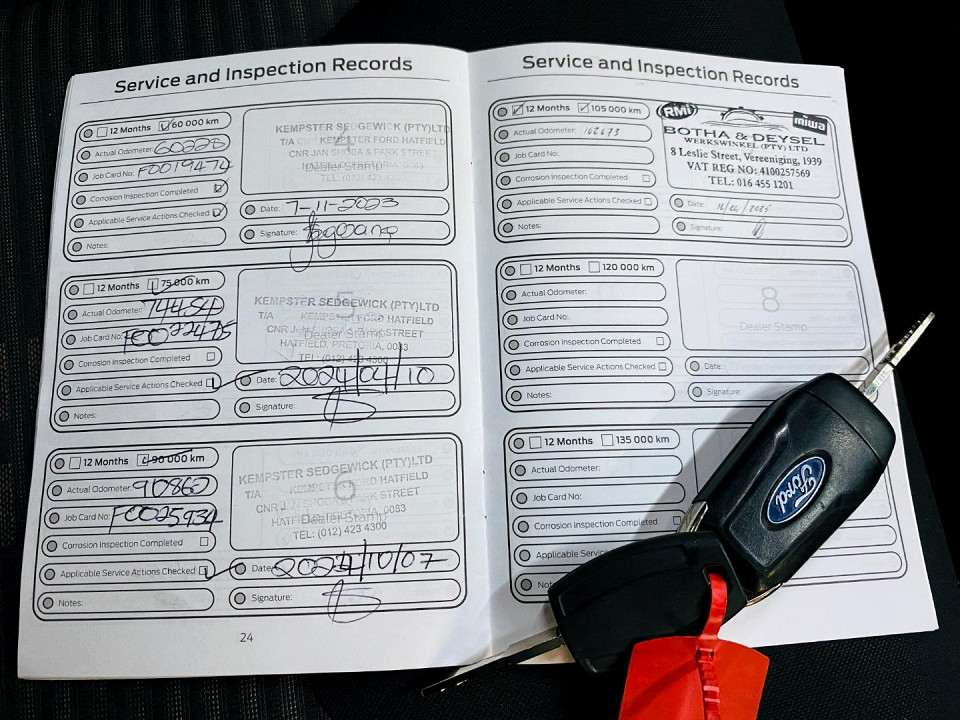 Service and Inspection Records
12 Months 60 000 km
Actual Odometer: 60228
Job Card No: F0019474
Corrosion Inspection Completed
Applicable Service Actions Checked
Notes:
KEMPSTER SEDGEWICK (PTY)LTD
T/A KEMPSTER FORD HATFIELD
CNR JAN SHOBA & PARK STREET
Dealer Stamp
TEL: (012) 423
Date: 7-11-2023
Signature:
12 Months 75 000 km
Actual Odometer: 74454
Job Card No: FC022475
Corrosion Inspection Completed
Applicable Service Actions Checked
Notes:
5
KEMPSTER SEDGEWICK (PTY)LTD
T/A KEMPSTER FORD HATFIELD
CNR STREET
Dealer Stamp
HATFIELD, PRETORIA, 0083
TEL: (012) 423 4300
Date: 2024/04/10
Signature:
12 Months 90 000 km
Actual Odometer: 90860
Job Card No: FC025934
Corrosion Inspection Completed
Applicable Service Actions Checked
Notes:
6
KEMPSTER SEDGEWICK (PTY)LTD
T/A HATFIELD
CNR PARK STREET
Dealer Stamp
0083
TEL: (012) 423 4300
Date: 2024/10/07
Signature:
24
Service and Inspection Records
12 Months 105 000 km
Actual Odometer:
Job Card No:
Corrosion Inspection Completed
Applicable Service Actions Checked
Notes:
RMi
miwa
BOTHA & DEYSEL
WERKSWINKEL (PTY) LTD
8 Leslie Street, Vereeniging, 1939
VAT REG NO: 4100257569
TEL: 016 455 1201
Date:
Signature:
12 Months 120 000 km
Actual Odometer:
Job Card No:
Corrosion Inspection Completed
Applicable Service Actions Checked
Notes:
8
Dealer Stamp
Date:
Signature:
12 Months 135 000 km
Actual Odometer:
Job Card No:
Corrosion Inspection Completed
Applicable
Ford